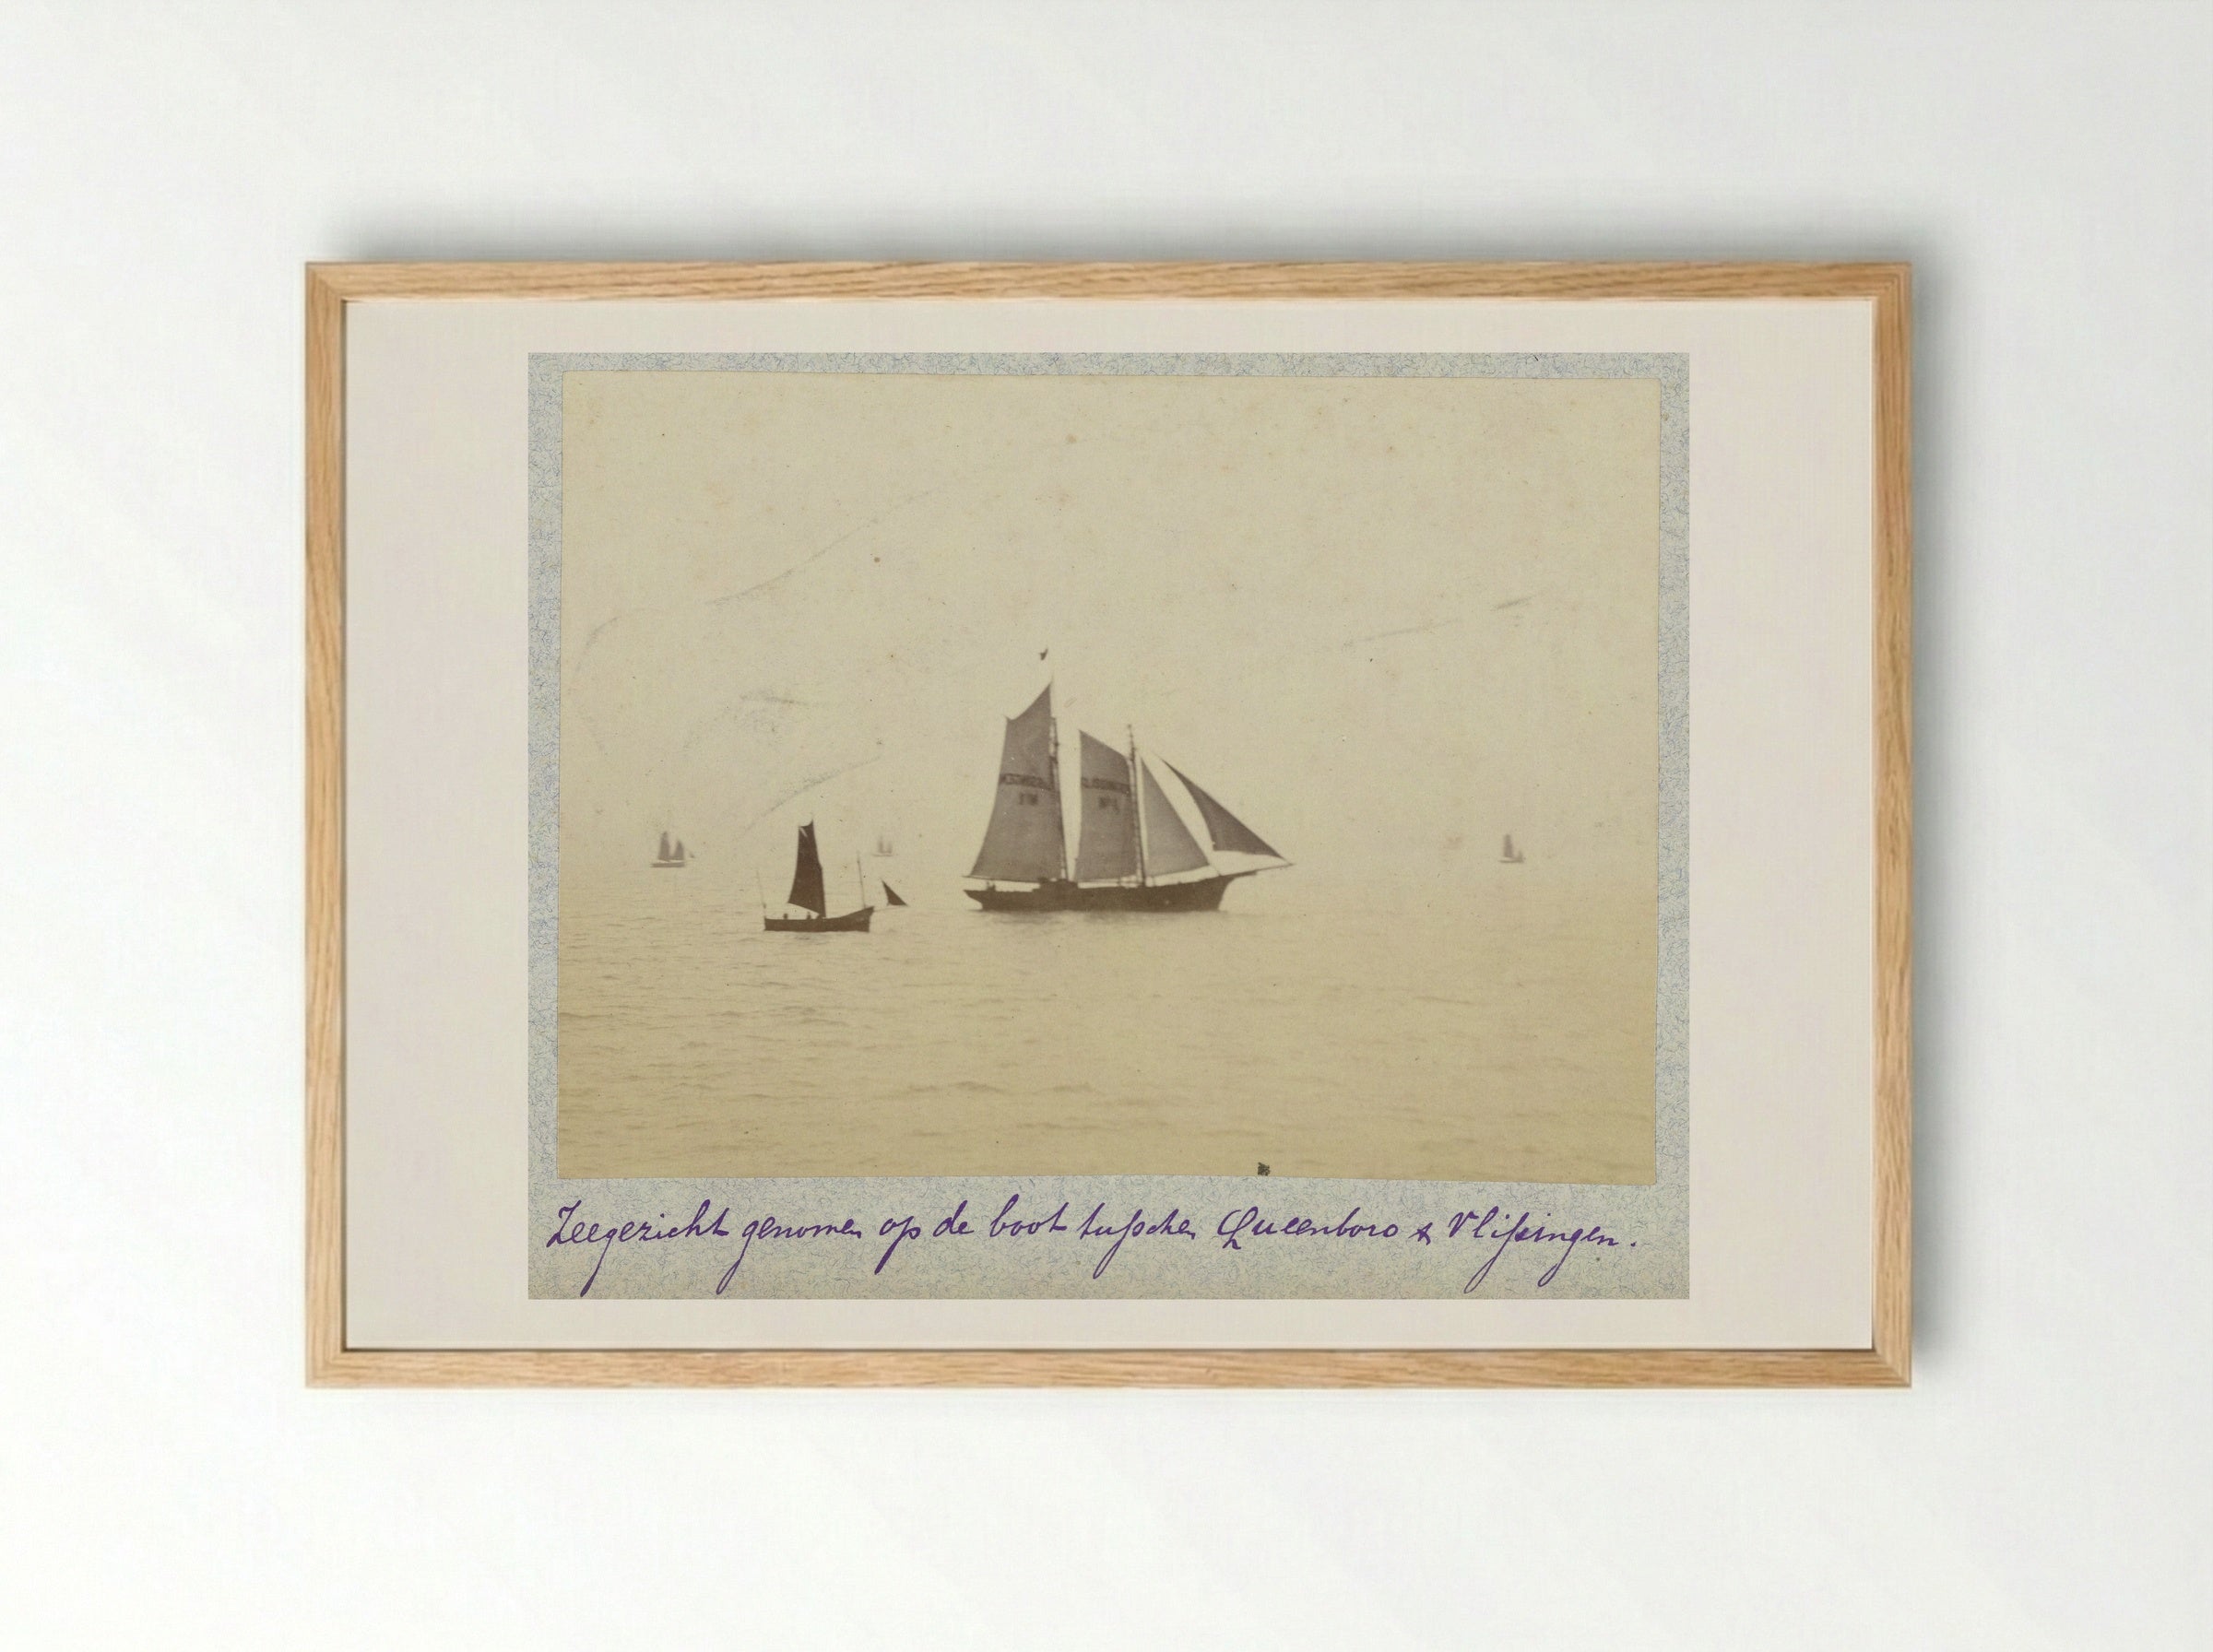 Zeegezicht genomen op de boot tusschen Queenboro & Vlissingen.